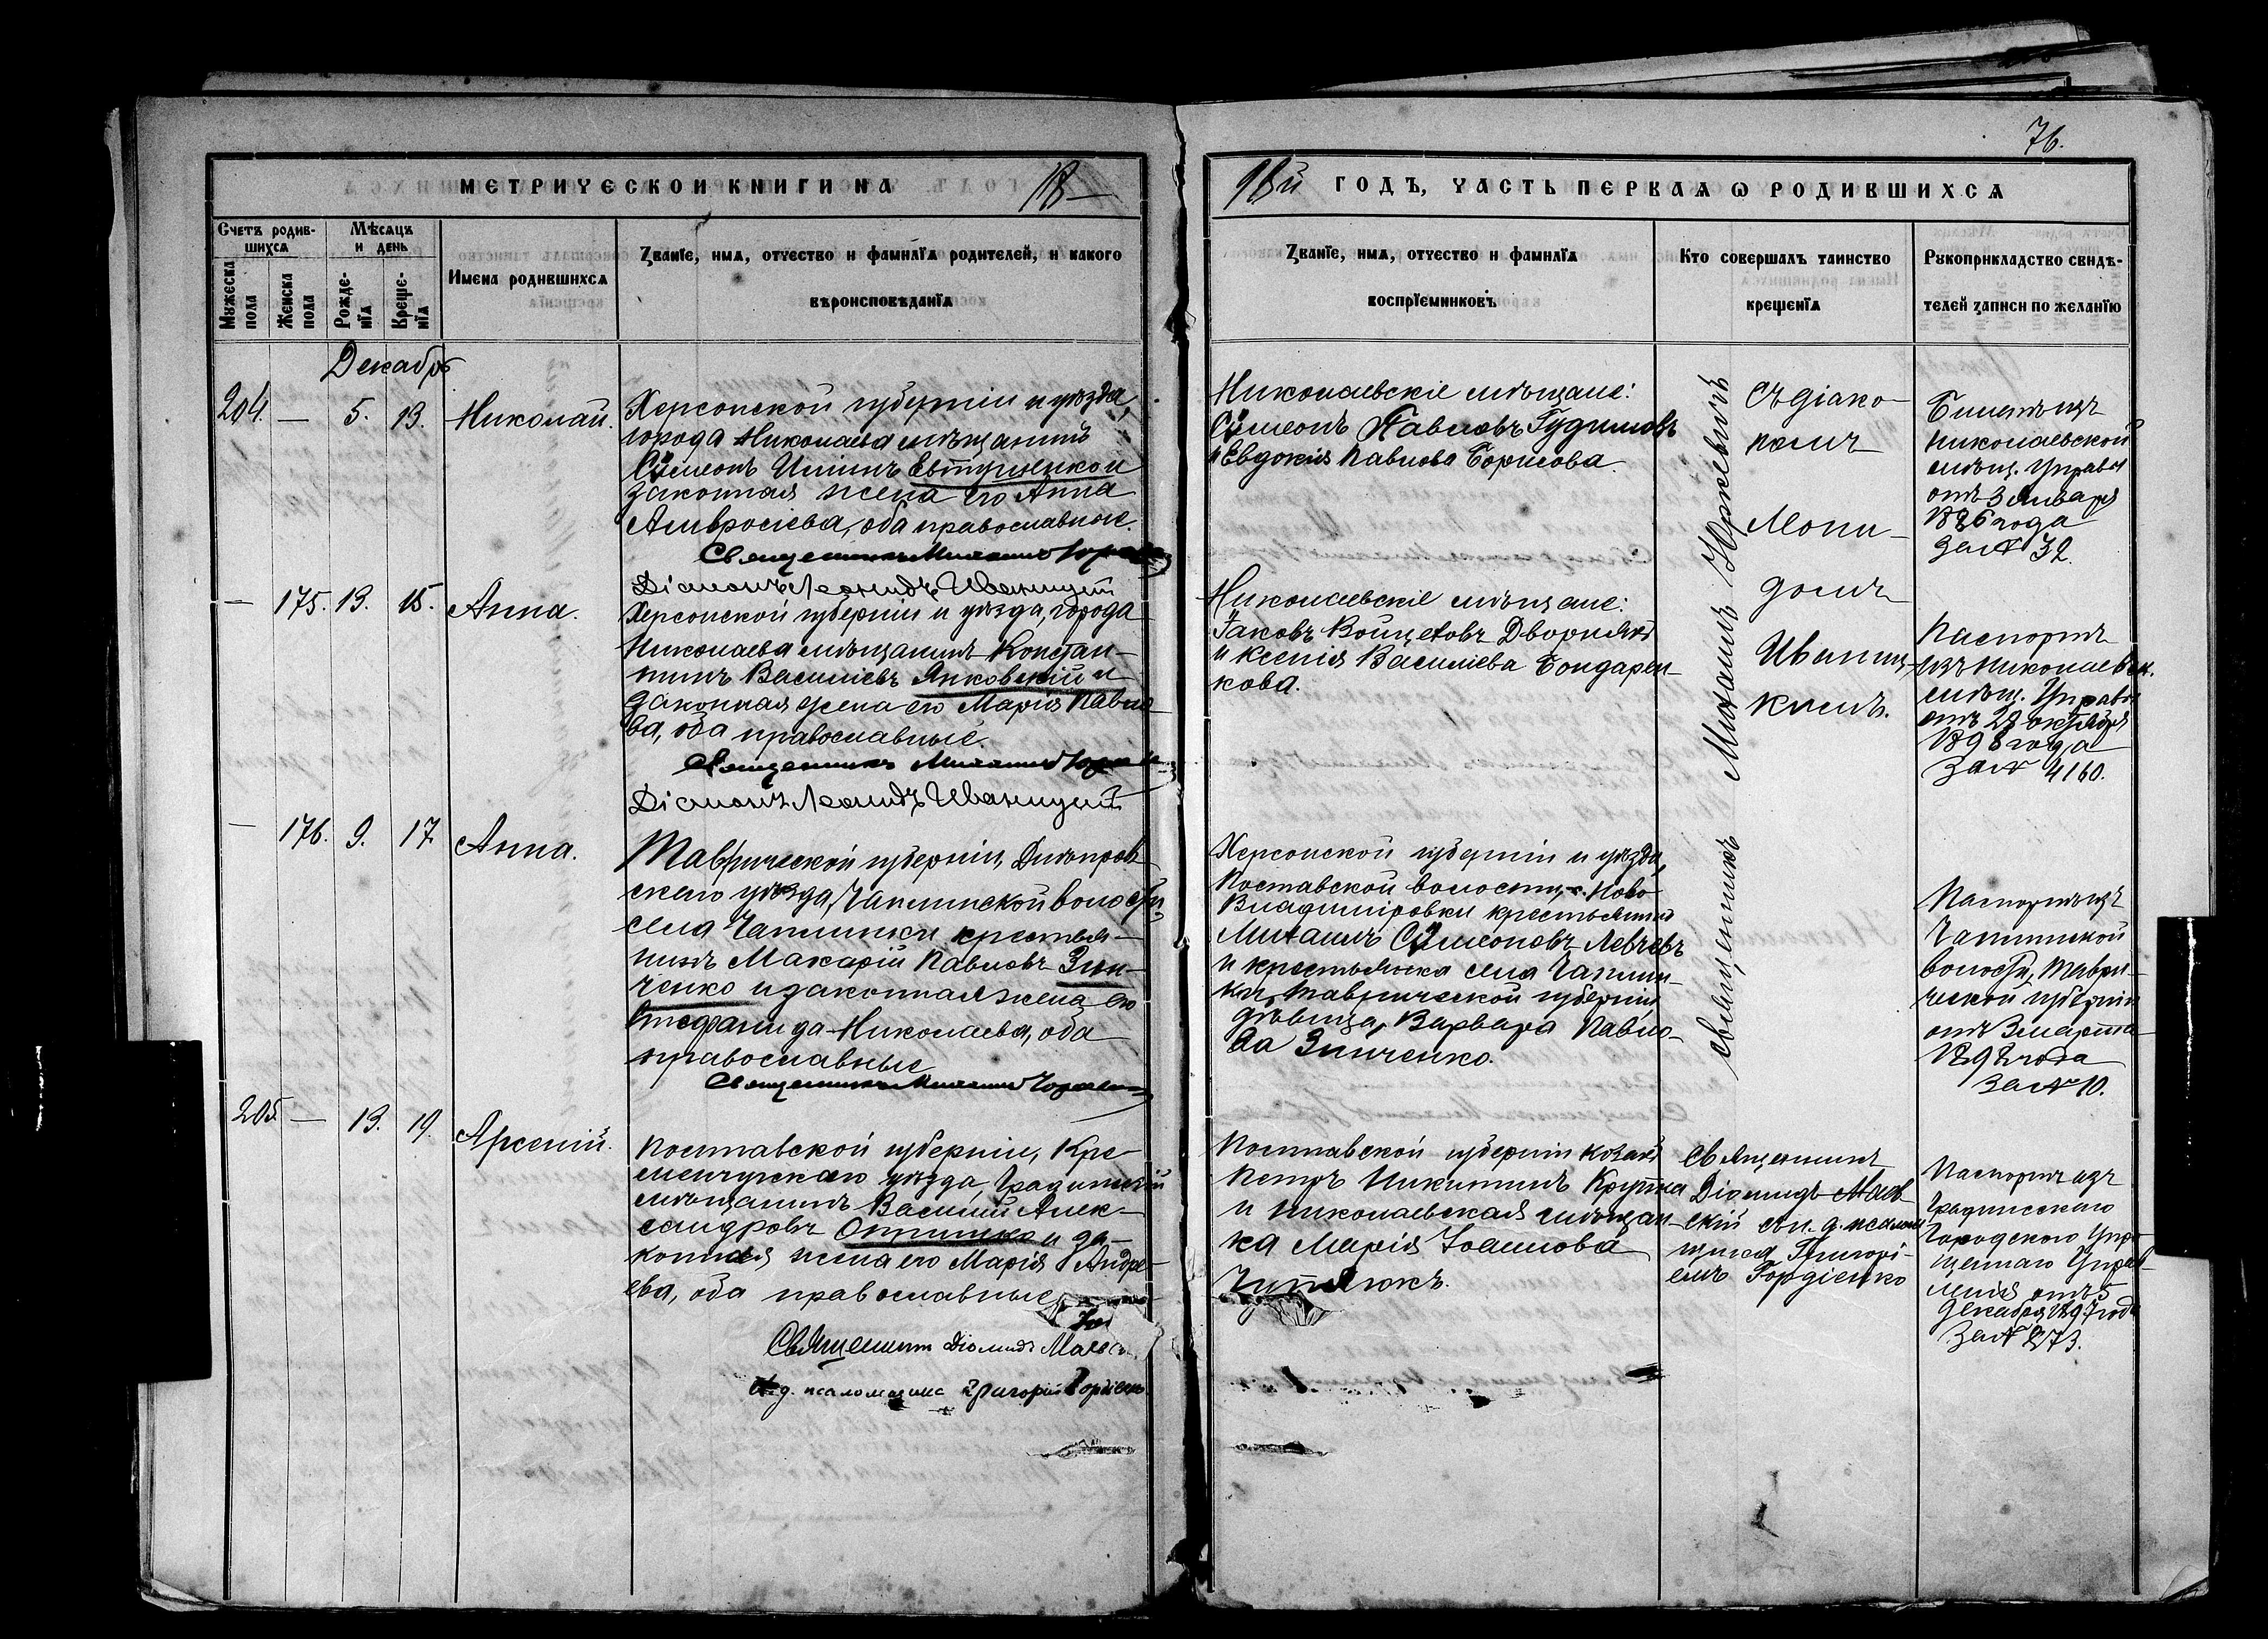 76.
МЕТРИЧЕСКОЙ КНИГИ НА 18—
98й ГОДЪ, ЧАСТЬ ПЕРВАЯ Ѡ РОДИВШИХСЯ
Счетъ родив-
шихся
Мѣсяцъ
и день
Мужеска
пола
Женска
пола
Рожде-
нїя
Креще-
нїя
Имена родившихся
Званїе, имя, отчество и фамилїя родителей, и какого
вѣроисповѣданїя
Званїе, имя, отчество и фамилїя
воспрїемниковъ
Кто совершалъ таинство
крещенїя
Рукоприкладство свидѣ-
телей записи по желанїю
Декабрь
204. — 5. 13. Николай.
Херсонской губерніи и уѣзда,
города Николаева мѣщанинъ
Сѵмеонъ Ильинъ и
законная жена его Анна
Амвросіева, оба православные.
Священникъ Михаилъ
Діаконъ Леонидъ Иваницкій
Николаевскіе мѣщане:
Сѵмеонъ Павловъ Гудимовъ
и Евдокія Павлова Борисова.
Священникъ Михаилъ Юркевичъ
съ діако-
номъ
Леони-
домъ
Иваниц-
кимъ.
Билетъ изъ
Николаевской
мѣщ. Управы
отъ 3 Января
года
за № 32.
— 175. 13. 15. Анна.
Херсонской губерніи и уѣзда, города
Николаева мѣщанинъ Констан-
тинъ Васильевъ Янковскій и
законная жена его Марія Павло-
ва, оба православные.
Священникъ Михаилъ
Діаконъ Леонидъ Иваницкій
Николаевскіе мѣщане:
Іаковъ Войцеховъ Дворникъ
и Ксенія Васильева Бондарен-
кова.
Паспортъ
изъ Николаевск.
мѣщ. Управы
отъ 28 октября
1898 года
за № 4160.
— 176. 9. 17. Анна.
Таврической губерніи, Днѣпров-
скаго уѣзда, Чаплинской волости,
села Чаплинки крестья-
нинъ Макарій Павловъ Зин-
ченко и законная жена его
Епифанида Николаева, оба
православные
Священникъ Михаилъ
Херсонской губерніи и уѣзда,
Полтавской волости, с. Ново
Владиміровки крестьянинъ
Михаилъ Сѵмеоновъ Левчевъ
и крестьянка села Чаплин-
ки, Таврической губерніи
дѣвица, Варвара Павло-
ва Зинченко.
Паспортъ изъ
Чаплинской
волости, Таври-
ческой губерніи
отъ 3 марта
1898 года
за № 10.
205. — 13. 19. Арсеній.
Полтавской губерніи, Кре-
менчугскаго уѣзда, Градижскій
мѣщанинъ Василій Алек-
сандровъ Отришко и за-
конная жена его Марія Андре-
ева, оба православные
Священникъ Діомидъ
И. д. псаломщика Григорій Гордіенко
Полтавской губерніи козакъ
Петръ Никитинъ Крупка
и Николаевская мѣщан-
ка Марія Іоаннова
Священникъ
Діомидъ Маев-
скій съ и. д. псалом-
щика Григорі-
емъ Гордіенко
Паспортъ изъ
Градижскаго
Городского Упро-
щеннаго Управ-
ленія отъ 5
Декабря 1897 года
за № 873.